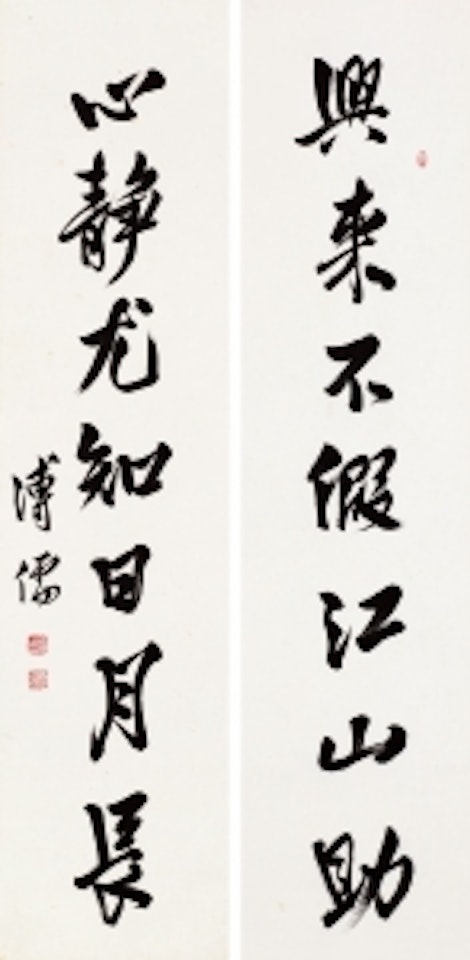 興来不假江山助
心静尤知日月長
溥儒